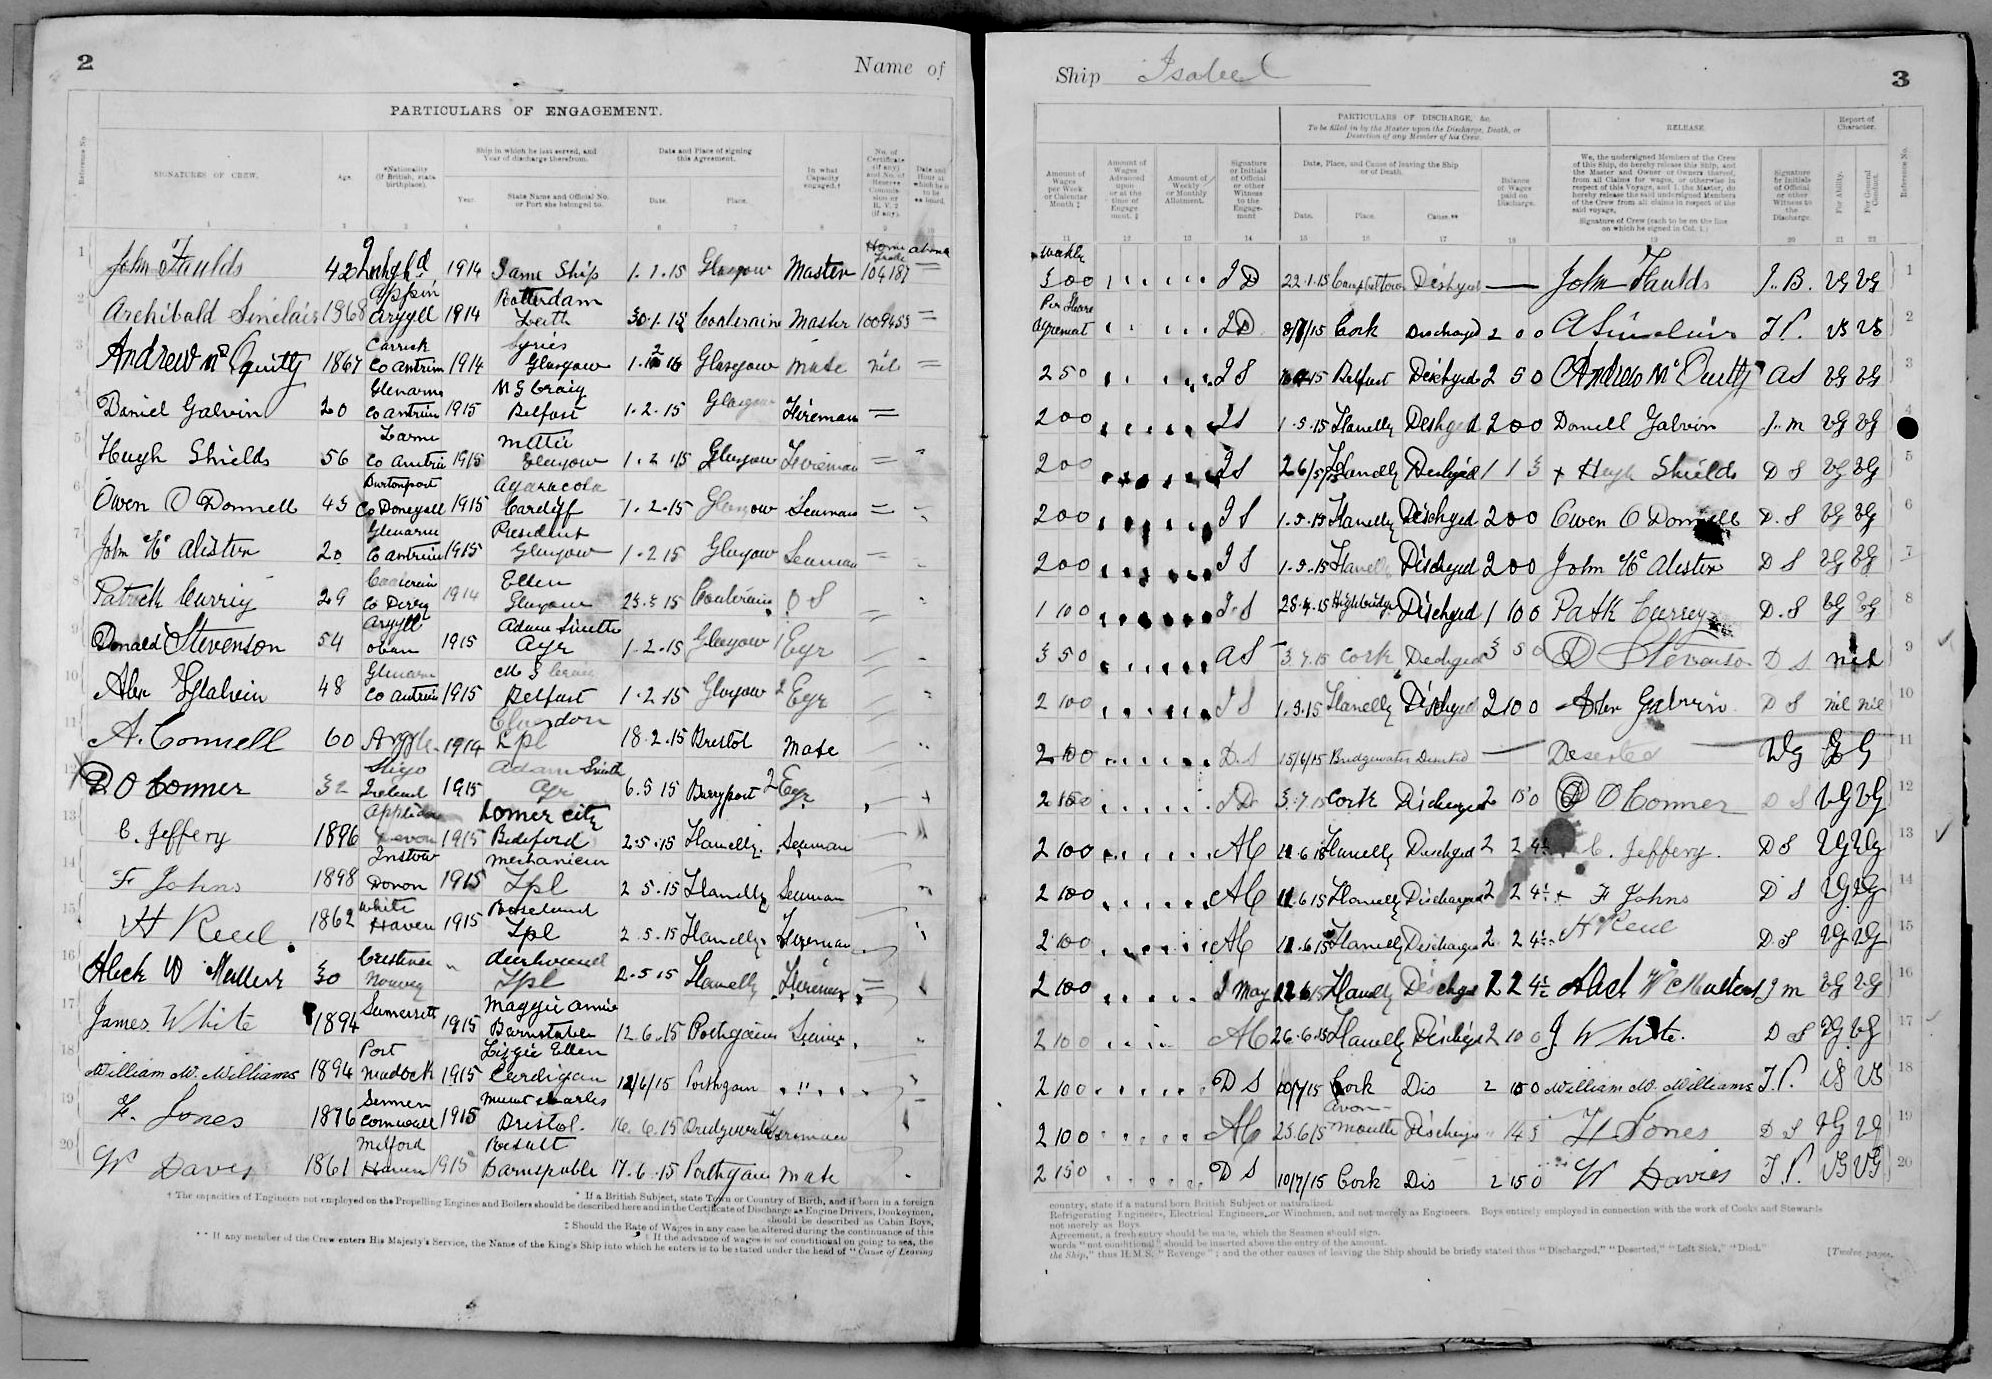 2
Name of
PARTICULARS OF ENGAGEMENT.
Reference No.
SIGNATURES OF CREW.
Age.
*Nationality (if British, state birthplace).
Ship in which he last served, and Year of discharge therefrom.
Year.
State Name and Official No. or Port she belonged to.
Date and Place of signing this Agreement.
Date.
Place.
In what Capacity engaged.†
No. of Certificate (if any), and No. of Reserve Commission or R.V.2 (if any).
1 John Faulds 42 1914 Same Ship 1.1.15 Glasgow Master 104187
2 Archibald Sinclair 1868 Appin Argyll 1914 Rotterdam Leith 30.1.15 Coaleraine Master
3 Andrew Mc Quitty 1867 Carrick Co Antrim 1914 Glasgow Glasgow Mate nil
4 Daniel Galvin 20 Glenarm Co Antrim 1915 M G Craig Belfast 1.2.15 Glasgow Fireman
5 Hugh Shields 56 Larne Co Antrim 1915 Glasgow 1.2.15 Glasgow Fireman
6 Owen O Donnell 43 Burtonport Co Donegall 1915 Cardiff 1.2.15 Glasgow Seaman
7 John Mc Alister 20 Glenarm Co Antrim 1915 President Glasgow 1.2.15 Glasgow Seaman
8 Patrick Curriy 29 Co Derry 1914 Ellen Glasgow 23.3.15 Coaleraine O S
9 Donald Stevenson 54 Argyll Oban 1915 Adam Smith Ayr 1.2.15 Glasgow 1 Egr
10 Alex Galvin 48 Glenarm Co Antrim 1915 M G Craig Belfast 1.2.15 Glasgow 2 Egr
11 A. Connell 60 Argyle 1914 Lpl 18.2.15 Bristol Mate
12 D O Conner 32 Sligo Ireland 1915 Adam Smith Ayr 6.5.15 Burryport 2 Egr
13 C. Jeffery 1896 Appledore Devon 1915 Bideford 2.5.15 Llanelly Seaman
14 F Johns 1898 Instow Devon 1915 Mechanician Lpl 2.5.15 Llanelly Seaman
15 H Reed 1862 White Haven 1915 Roseland Lpl 2.5.15 Llanelly Fireman
16 Aleck W 30 Norway " Deerhound Lpl 2.5.15 Llanelly Fireman
17 James White 1894 Sumersett 1915 Maggie Annie Barnstable 12.6.15 Porthgain Seaman
18 William W. Williams 1894 Port Madock 1915 Lizzie Ellen Cardigan 12/6/15 Porthgain "
19 F. Jones 1876 Sennen Cornwall 1915 Mount Charles Bristol. 16.6.15 Bridgewater Fireman
20 W Davies 1861 Milford Haven 1915 Result Barnspable 17.6.15 Porthgain Mate
† The capacities of Engineers not employed on the Propelling Engines and Boilers should be described here and in the Certificate of Discharge as Engine Drivers, Donkeymen,
* If a British Subject, state Town or Country of Birth, and if born in a foreign
should be described as Cabin Boys,
‡ Should the Rate of Wages in any case be altered during the continuance of this
† If the advance of wages is not conditional on going to sea, the
** If any member of the Crew enters His Majesty's Service, the Name of the King's Ship into which he enters is to be stated under the head of "Cause of Leaving
Ship Isabel
3
PARTICULARS OF DISCHARGE, &c.
To be filled in by the Master upon the Discharge, Death, or Desertion of any Member of his Crew.
RELEASE.
Report of Character.
Amount of Wages per Week or Calendar Month ‡
Amount of Wages Advanced upon or at the time of Engagement. ‡
Amount of Weekly or Monthly Allotment.
Signature or Initials of Official or other Witness to the Engagement
Date, Place, and Cause of leaving the Ship or of Death.
Date.
Place.
Cause.**
Balance of Wages paid on Discharge.
We, the undersigned Members of the Crew of this Ship, do hereby release this Ship, and the Master and Owner or Owners thereof, from all Claims for wages, or otherwise in respect of this Voyage, and I, the Master, do hereby release the said undersigned Members of the Crew from all claims in respect of the said voyage.
Signature of Crew (each to be on the line on which he signed in Col. 1.)
Signature or Initials of Official or other Witness to the Discharge.
For Ability.
For General Conduct.
Reference No.
Weekly
3 0 0 J D 22.1.15 Campbeltown Dischged John Faulds J.B. VG VG 1
Per Share Agremat J D Cork Discharged 2 0 0 A Sinclair J.P. VG VG 2
2 5 0 J S Belfast Dischged 2 5 0 Andrew Mc Quitty A S VG VG 3
2 0 0 J S 1.5.15 Llanelly Dischged 2 0 0 Daniell Galvin J.m VG VG 4
2 0 0 J S 26/5/15 Llanelly Dischged 1 1 3 x Hugh Shields D S VG VG 5
2 0 0 J S 1.5.15 Llanelly Dischged 2 0 0 Owen O Donnell D.S VG VG 6
2 0 0 J S 1.5.15 Llanelly Dischged 2 0 0 John Mc Alister D S VG VG 7
1 10 0 J.S Highbridge Dischged 1 10 0 Patk Currey D.S VG VG 8
3 5 0 A S 3.7.15 Cork Dischged 3 5 0 D Stevenson D S nil 9
2 10 0 J S Llanelly Dischged 2 10 0 Alex Galvin D S nil nil 10
2 10 0 D.S 15/6/15 Bridgewater Deserted Deserted VG G 11
J D 3.7.15 Cork Discharged 2 15 0 D O Conner D S VG VG 12
2 10 0 A C Llanelly Dischged 2 2 4½ C. Jeffery. D S VG VG 13
2 10 0 A C Llanelly Discharged 2 2 4½ x F Johns D S VG VG 14
2 10 0 A C Llanelly Discharged 2 2 4½ H Reed D.S VG VG 15
2 10 0 Llanelly Dischged 2 2 4½ J m VG VG 16
2 10 0 A C 26.6.15 Llanelly Dischged 2 10 0 J White. D S VG VG 17
2 10 0 D S 10/7/15 Cork Dis 2 10 0 William W. Williams J.P. VG VG 18
2 10 0 A C 23.6.15 Avonmouth Discharge 14 3 F Jones D S VG VG 19
2 15 0 D S 10/7/15 Cork Dis 2 15 0 W Davies J.P. VG VG 20
country, state if a natural born British Subject or naturalized.
Refrigerating Engineers, Electrical Engineers, or Winchmen, and not merely as Engineers. Boys entirely employed in connection with the work of Cooks and Stewards
not merely as Boys.
Agreement, a fresh entry should be made, which the Seamen should sign.
words "not conditional" should be inserted above the entry of the amount.
the Ship," thus H.M.S. "Revenge"; and the other causes of leaving the Ship should be briefly stated thus "Discharged," "Deserted," "Left Sick," "Died."
[Twelve pages.